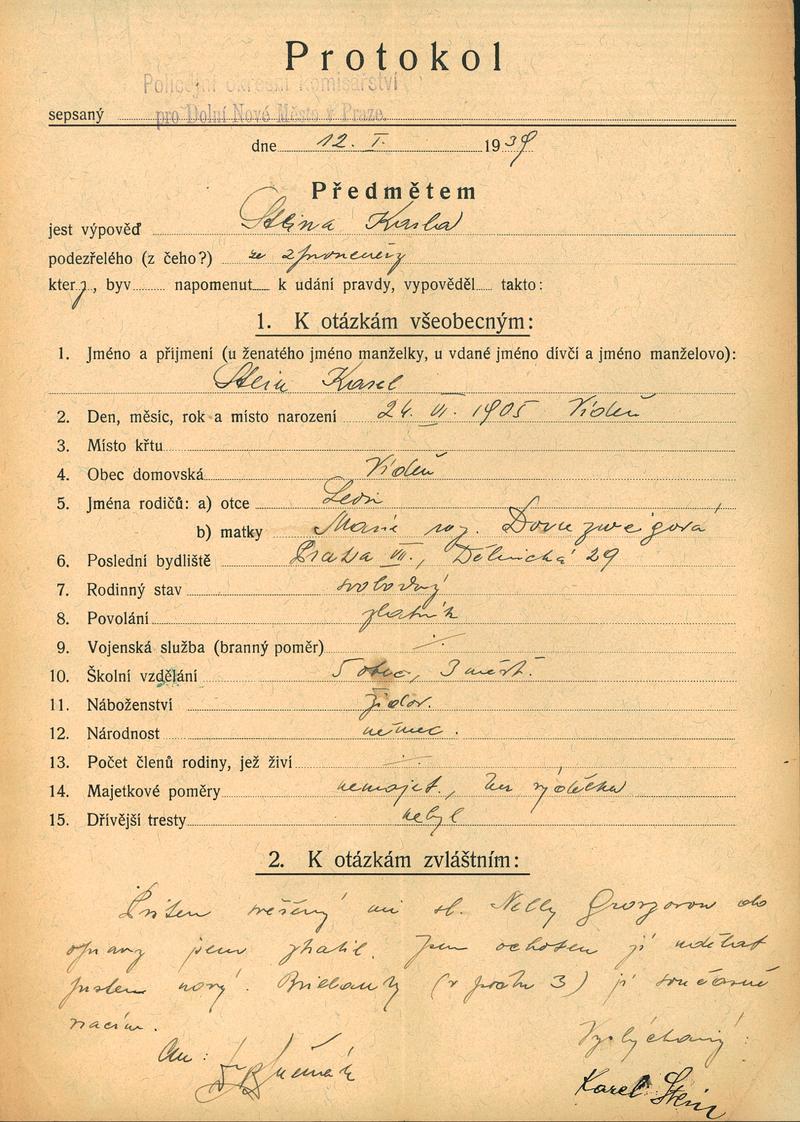 Protokol
Policejní okresní komisařství
sepsaný pro Dolní Nové Město v Praze.
dne 12. I. 1939
Předmětem
jest výpověď Steina Karla
podezřelého (z čeho?) ze zpronevěry
který, byv napomenut k udání pravdy, vypověděl takto:
1. K otázkám všeobecným:
1. Jméno a příjmení (u ženatého jméno manželky, u vdané jméno dívčí a jméno manželovo):
Stein Karel
2. Den, měsíc, rok a místo narození 24. VI. 1905 Vídeň
3. Místo křtu
4. Obec domovská Vídeň
5. Jména rodičů: a) otce Leon
b) matky Marie roz. Dornzweigová
6. Poslední bydliště Praha VII., Dělnická 29
7. Rodinný stav svobodný
8. Povolání zlatník
9. Vojenská služba (branný poměr) ·/·
10. Školní vzdělání 5 obec, 3 měšť.
11. Náboženství židov.
12. Národnost němec.
13. Počet členů rodiny, jež živí ·/·
14. Majetkové poměry nemajet., bez výdělku
15. Dřívější tresty nebyl
2. K otázkám zvláštním:
Prsten svěřený mi sl. Nelly do
opravy jsem ztratil. Jsem ochoten jí udělat
prsten nový. Brillanty (v počtu 3) jí současně
vracím.
Vyslýchaný:
Karel Stein